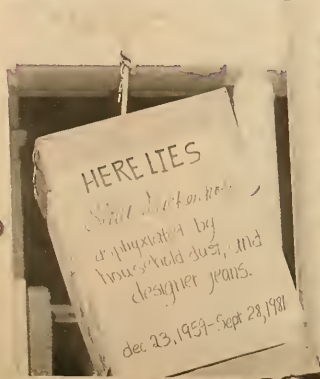 HERE LIES
asphyxiated by
household dust, and
designer jeans.
dec 23, 1959 - Sept 28, 1981